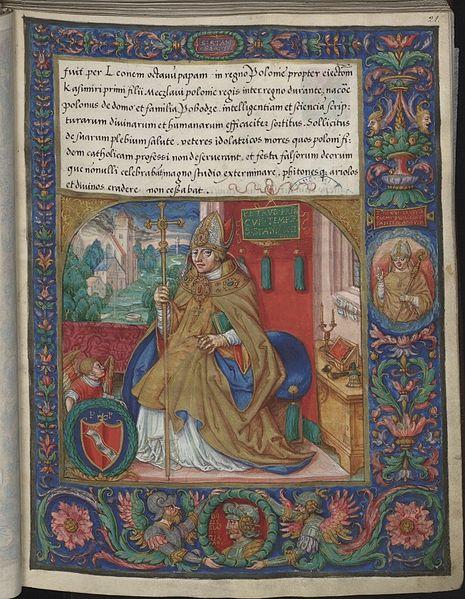 21.
S. STAN
fuit per Leonem octavū papam in regno Polonie propter eiectōem
Kasimiri primi filii Meczlaui polonie regis inter regno durante, nacōe
polonus de domo et familia Pobodze. intelligentiam et sciencia scrip-
turarum divinarum et humanarum efficaciter sortitus. Sollicitus
de suarum plebium salute. veteres idolatricos mores quos poloni fi-
dem catholicam professi non deseruerant, et festa falsorum deorum
que nonulli celebrabāt magno studio exterminare, phitones ariolos
et divinos eradere non cessabat.
PETRVS PRI
CVI TEMP
S. STANI